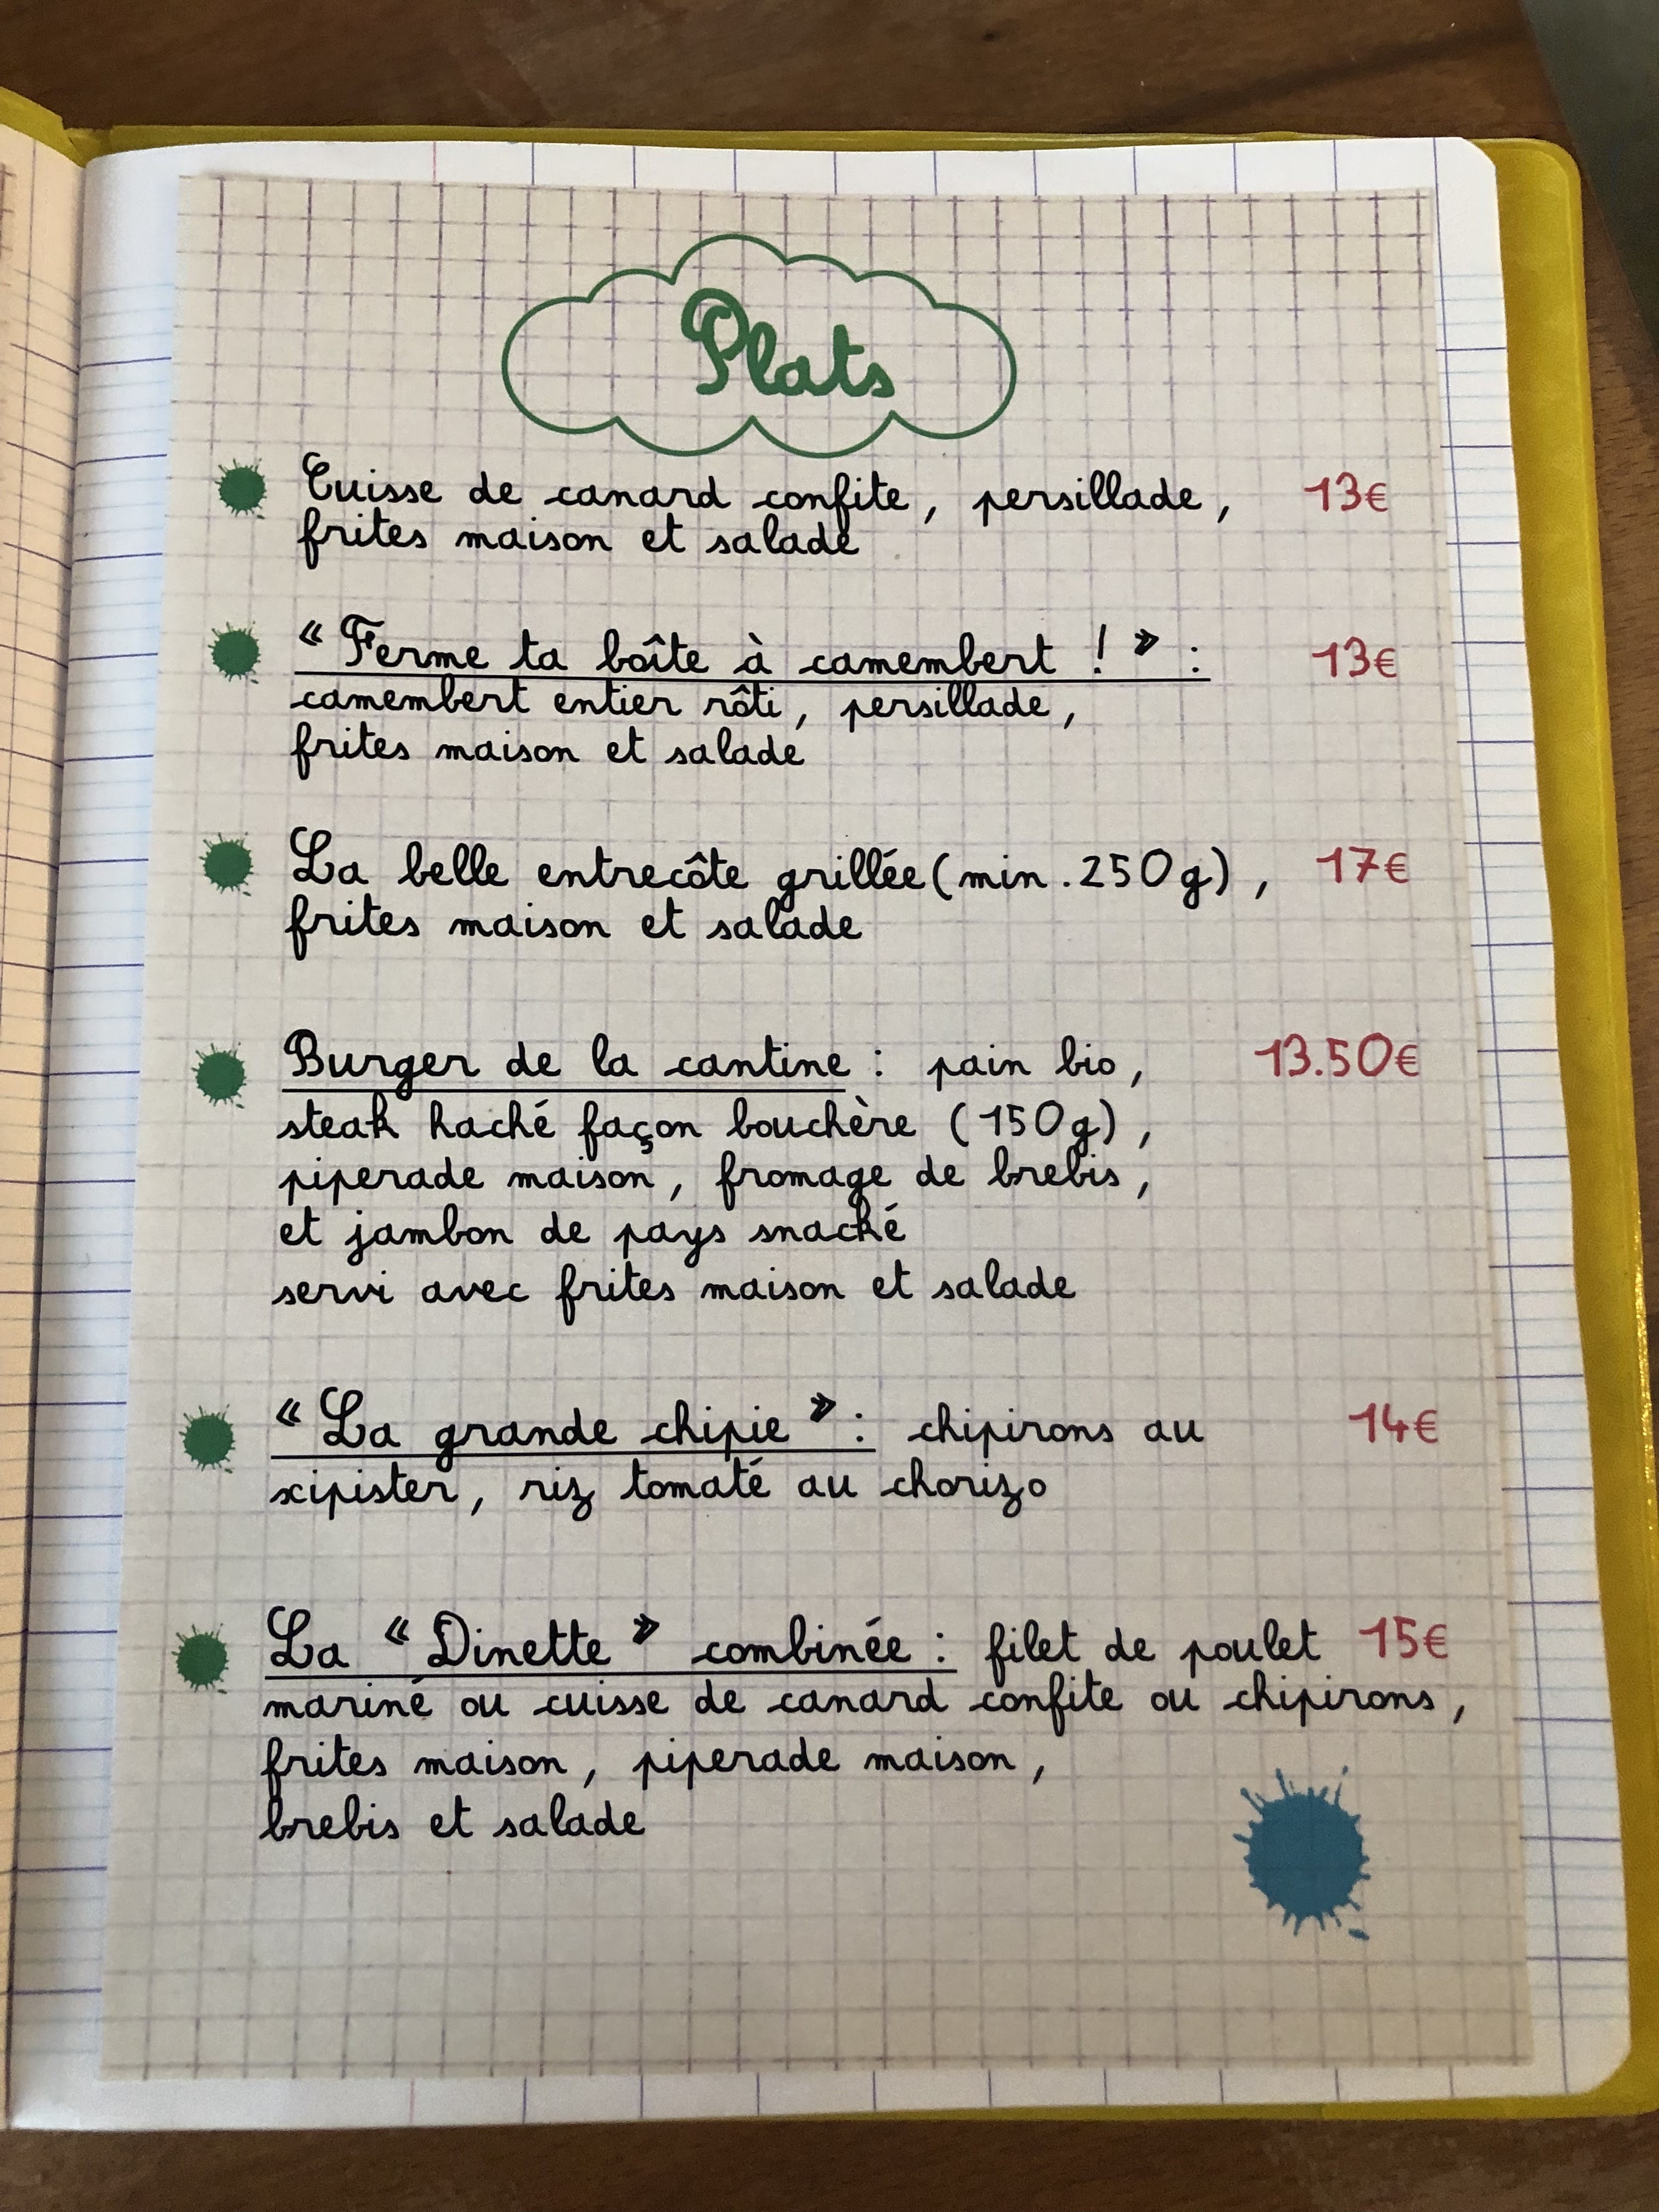 Plats
Cuisse de canard confite, persillade, 13€
frites maison et salade
« Ferme ta boîte à camembert ! » : 13€
camembert entier rôti, persillade,
frites maison et salade
La belle entrecôte grillée (min. 250g), 17€
frites maison et salade
Burger de la cantine : pain bio, 13.50€
steak haché façon bouchère (150g),
piperade maison, fromage de brebis,
et jambon de pays snaché
servi avec frites maison et salade
« La grande chipie » : chipirons au 14€
xipister, riz tomaté au chorizo
La « Dinette » combinée : filet de poulet 15€
mariné ou cuisse de canard confite ou chipirons,
frites maison, piperade maison,
brebis et salade